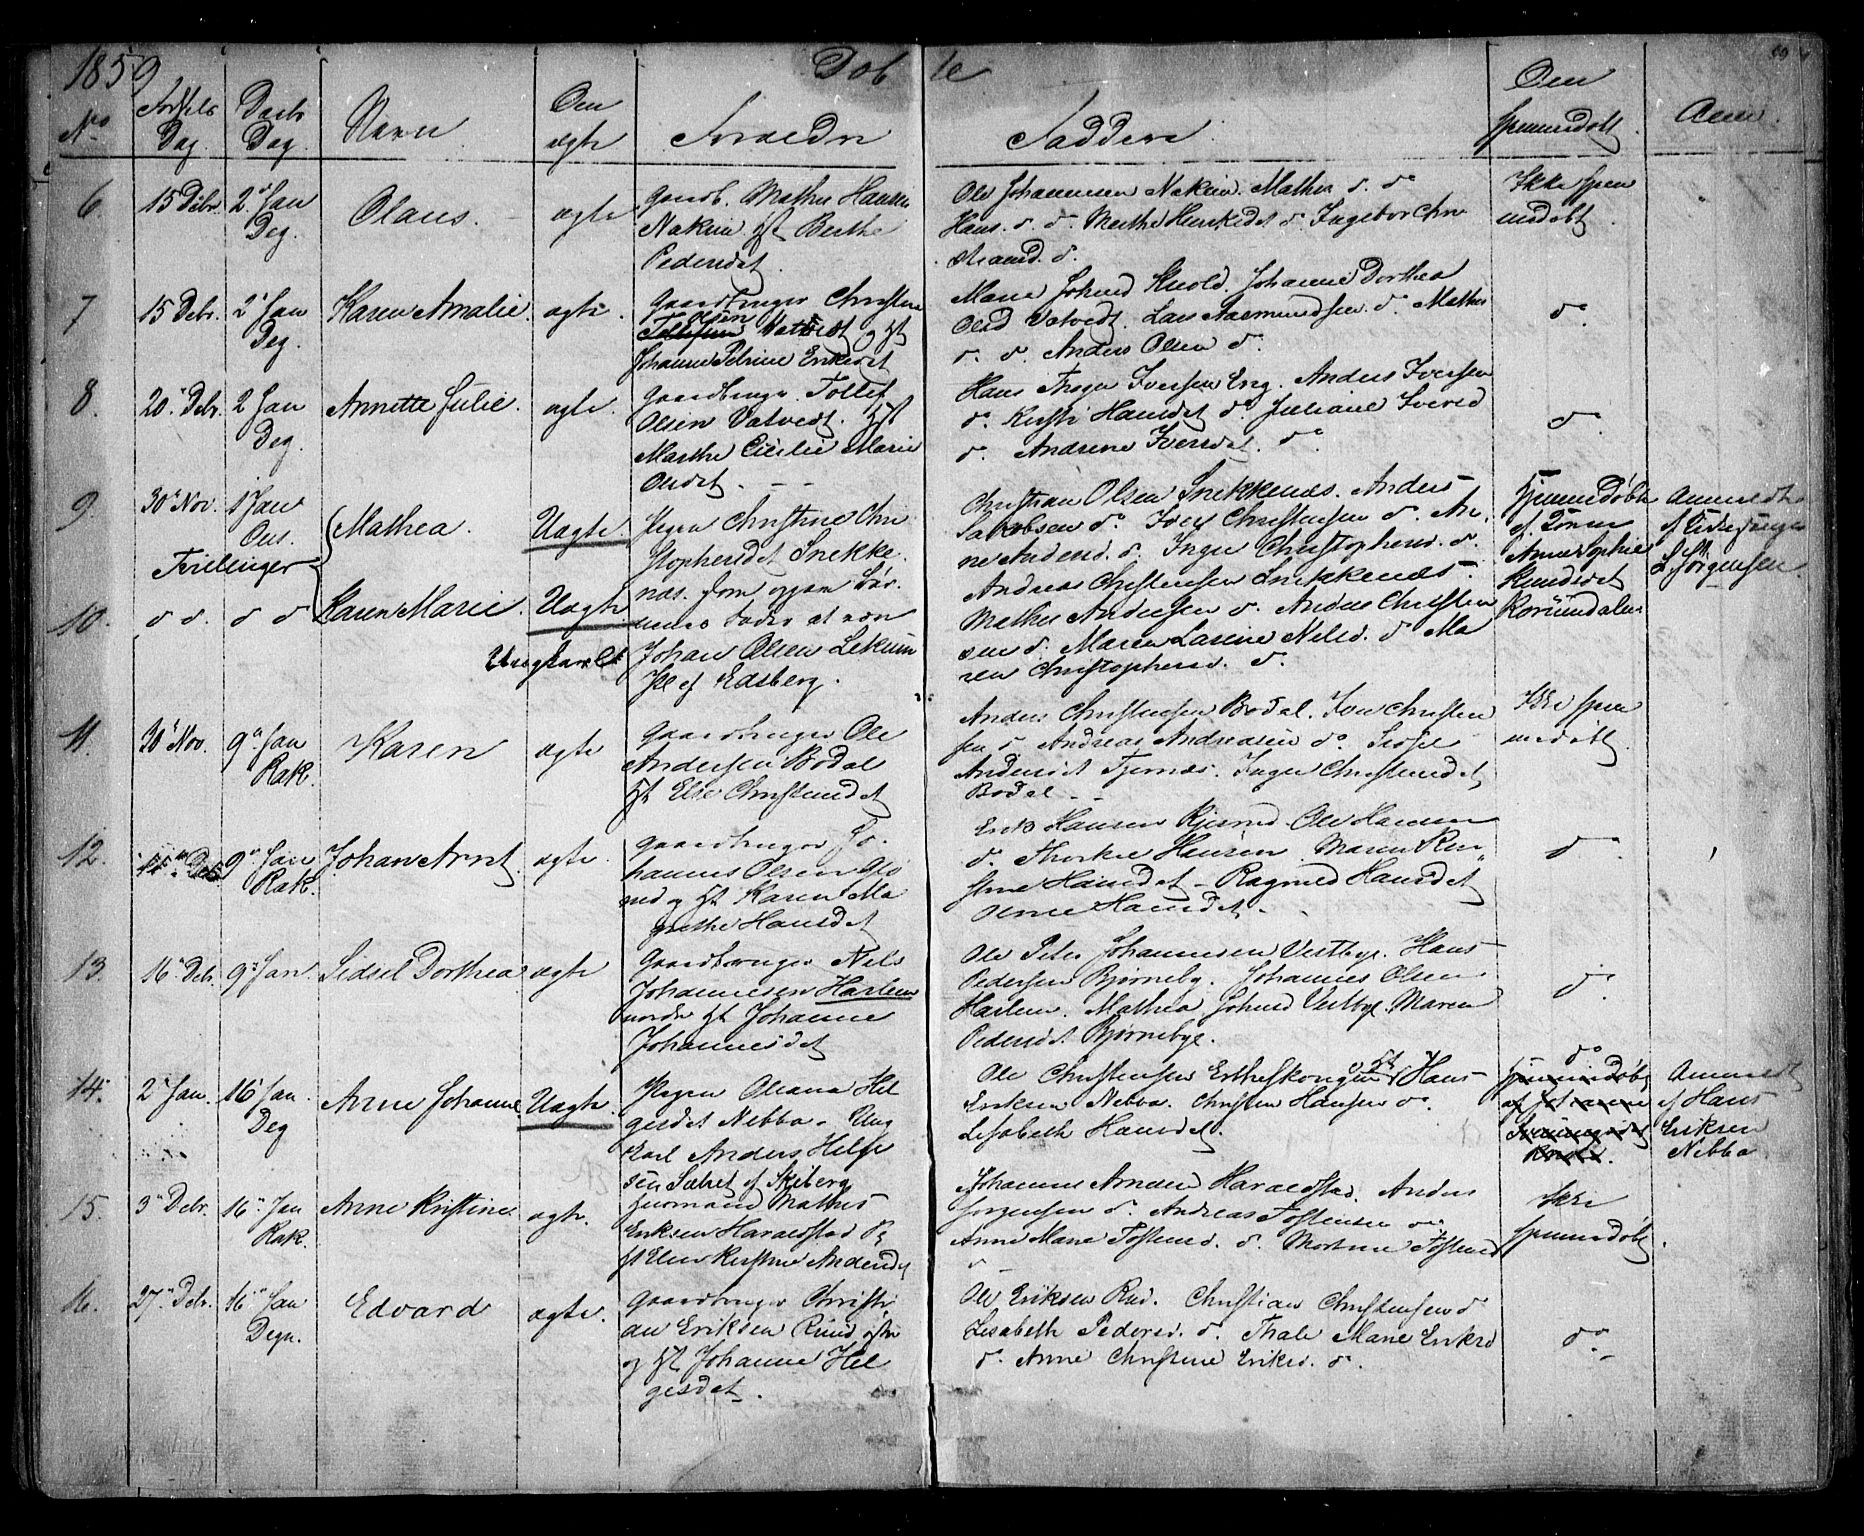 1859
Døb te
No
Fødsels Dag.
Daabs Dag.
Navn
Om ægte
Forældre
Faddere
Om hjemmedøbt.
Anm.
6. 15 Debr. 2 Jan Deg. Olaus. ægte
Gaardb. Mathis Hansen
Nakim. Hst Berthe
Pedersdat.
Ole Johannesen Nakim. Mathea do. do
Hans. do. do. Marthe do. Ingebor Chri
do.
Ikke hjem
medøbt
7 15 Debr. 2 Jan Deg. Karen Amalie. ægte.
Gaardbruger Christian
Olsen
Tollefsen Vatvedt og Hst
Johanne Petrine Eriksdat
Maren Johnsd Skold. Johanne Dorthea
Olsd Vatvedt. Lars Aasmundsen do. Mathis
do. do. Anders Olsen do.
do.
8. 20 Debr. 2 Jan Deg. Annette Julie. ægte.
Gaardbruger Tollef
Olsen Vatvedt. Hst
Marthe Cicilie Marie
Olsdat.
Hans Iversen Eng. Anders Iversen
do. Kirsti Hansdat do. Juliane Iversd
do. Andrine Iversdat. do
do.
9 30 Nov. 1 Jan Ons. Mathea. Uægte
Tvillinger
Pigen Christine Chri
stophersdat Snekke
næs. som opgav Bar
Christian Olsen Snekkenæs. Anders
Jakobsen do. Iver Christensen do. An
ne Andersd. do. Inger Christophersd. do.
Hjemmedøbt
af Konen
Anne Sophie
Knudsdat
Korsundalen
Anmeldt
af Kirkesanger
L. Jörgensen.
10. do do. do do Karen Marie. Uægte
Ungkarl
nenes Fader at være
Johan Olsen Lekum
Hst af Edsberg.
Andreas Christensen Snekkenæs.
Mathis Andersen do. Anders Christian
sen do. Maren Larine Nilsd. do Ma
ren Christophersd. do.
11. 30 Nov. 9 Jan Rak. Karen ægte
Gaardbruger Ole
Andersen Bodal
Hst Else Christensdat
Anders Christensen Bodal. Iver Christen
sen do Andreas Andreasen do.
Andersdat Tjernæs. Inger Christensdat
Bodal
Ikke hjem
medøbt.
12. 11 Deb 9 Jan Rak. Johan Arnt ægte.
Gaardbruger Jo
hannes Olsen
og Hst Karen Ma
grethe Hansdat
Erik Hansen Ole Hansen
do. Thorkel Hansen Maren Kri
stine Hansdat. Ragnild Hansdat
Hansdat.
do.
13 16 Debr. 9 Jan. Sidsel Dorthea ægte
Gaardbruger Nils
Johannesen Harlem
nordre Hst Johanne
Johannesdat
Ole Peter Johannesen Vestbye. Hans
Pedersen Bjørneby. Johannes Olsen
Harlem. Mathea Johnsd Vestbye. Maren
Pedersdat Bjørnebye.
do.
14. 2 Jan. 16 Jan. Deg Anne Johanne Uægte
Pigen Oleana Hel
gesdat Nebba. Ung
karl Anders Helge
sen Sætret af Skiberg
Ole Christensen og Hst Hans
Eriksen Nebba. Christen Hansen do.
Lisabeth Hansdat.
do
Hjemmedøbt
af Johanne
Anmeldt
af Hans
Eriksen
Nebba
15. 3 Debr. 16 Jan Rak. Anne Kristine ægte.
Huusmand Mathis
Eriksen Haraldstad
Hst Elen Kirstine Andersdat
Johannes Haraldstad. Anders
Jørgensen do. Andreas Tostensen do
Anne Marie Tostensd. do. Mortine Tostensd
do
Ikke
hjemmedøbt.
16. 27 Debr. 16 Jan Degn. Edvard ægte.
Gaardbruger Christi
an Eriksen Ruud østre
og Hst Johanne Hel
gesdat.
Ole Eriksen Rud. Christian Christensen do
Lisabeth Pedersd. do. Thale Marie Eriksd
do. Anne Christine Eriksd. do.
do.